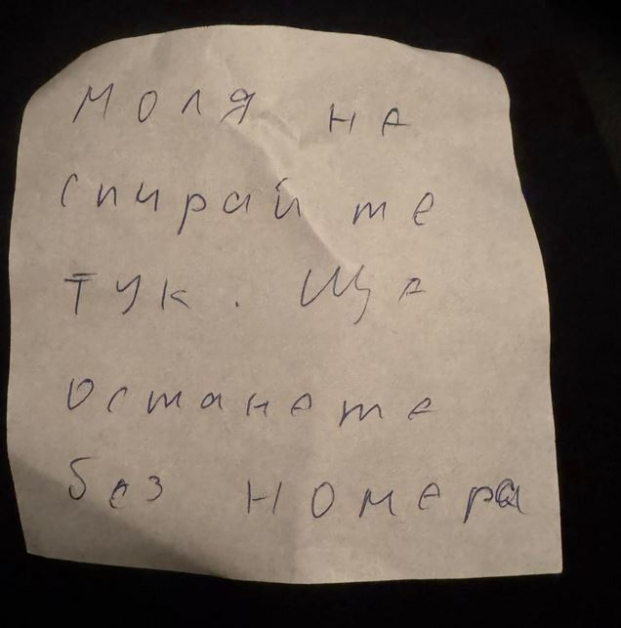 Моля не
спирай те
тук. Ще
останете
без номера